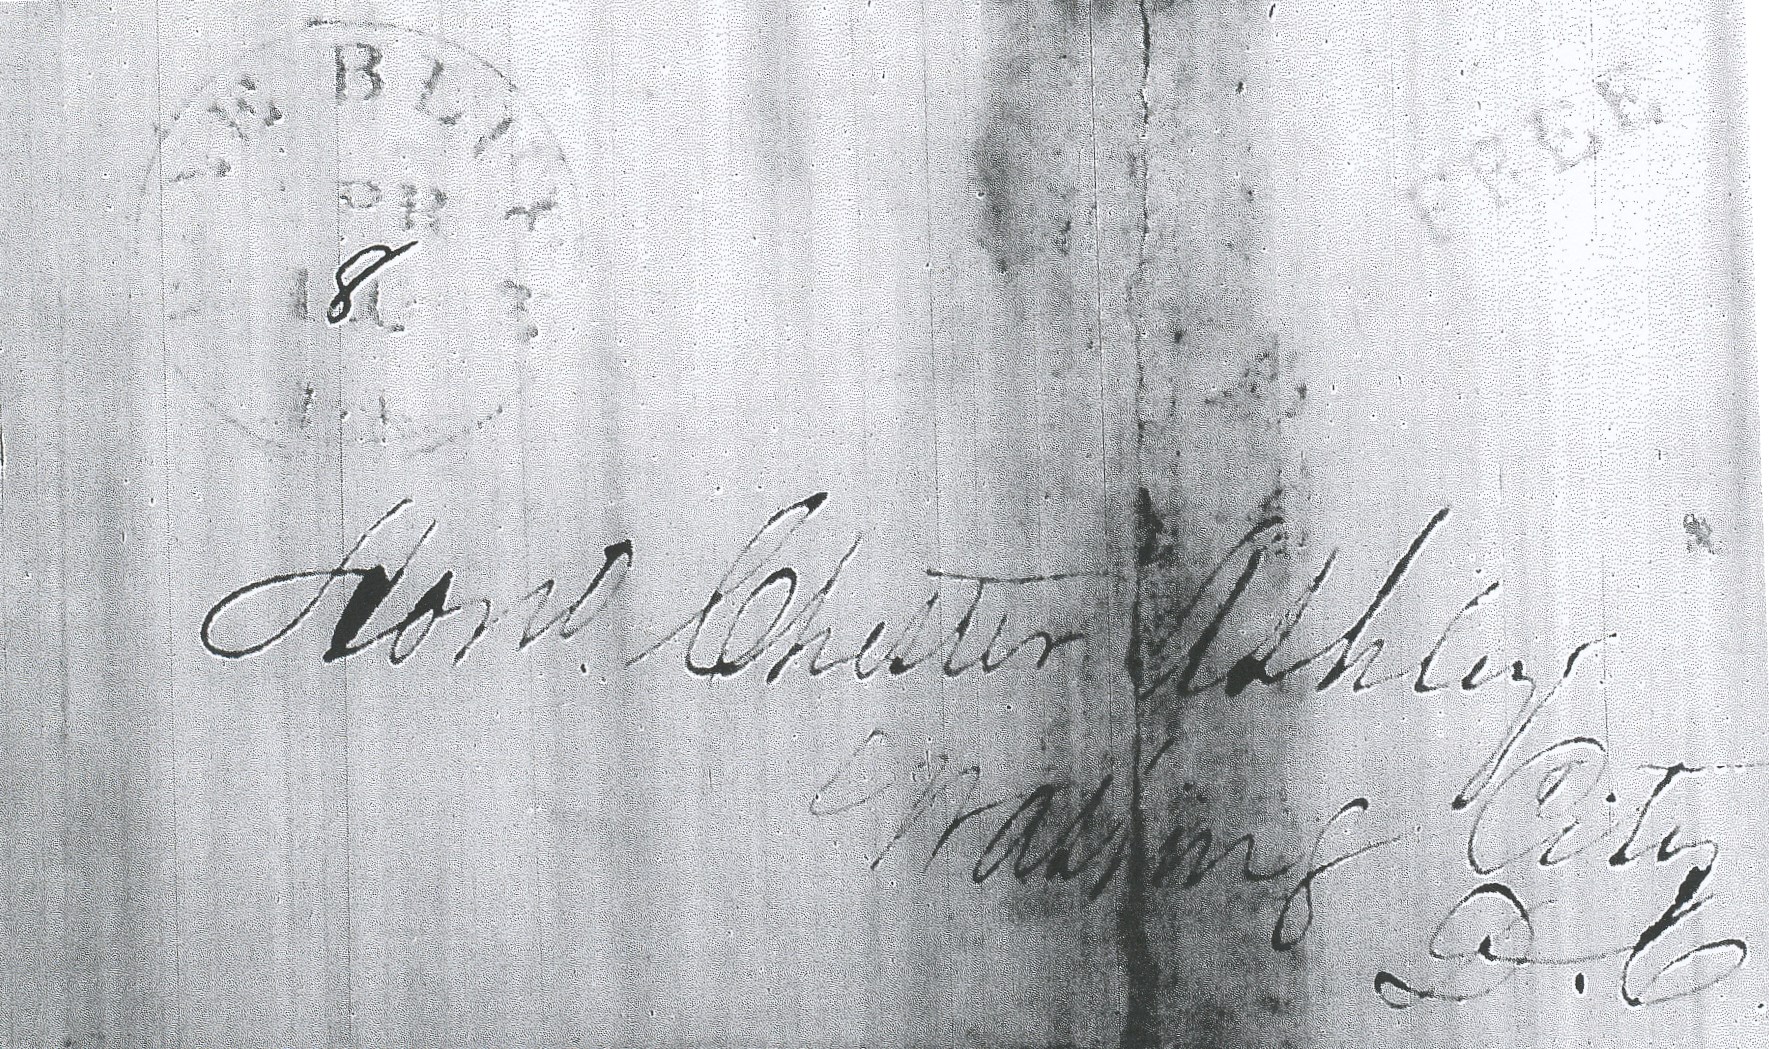 PR
8
FREE
Honl. Chester Ashley
Washing City
D. C